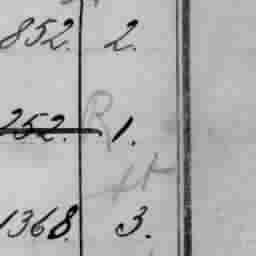 852. 2.
252. R 1.
1368. 3.